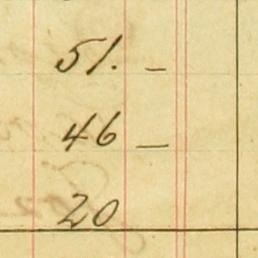 51. –
46 –
20